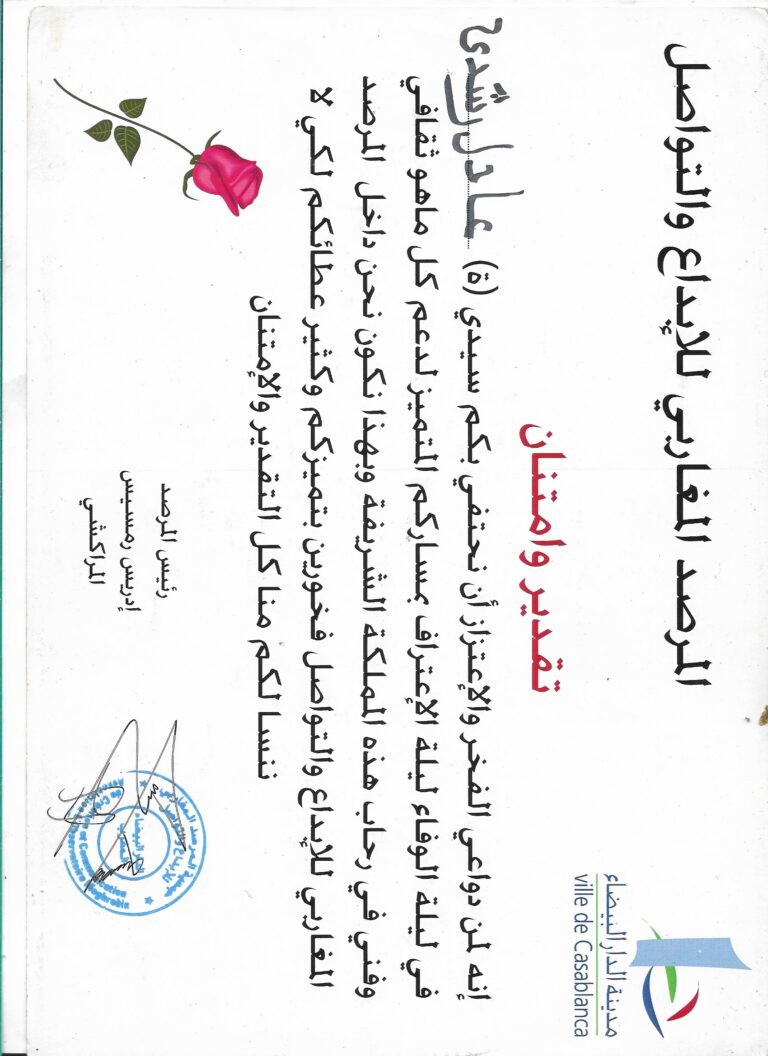 المرصد المغاربي للإبداع والتواصل
مدينة الدار البيضاء
ville de Casablanca
تقدير وامتنان
إنه لمن دواعي الفخر والإعتزاز أن نحتفي بكم سيدي (ة) عادل رشدي
في ليلة الوفاء ليلة الإعتراف بمساركم المتميز لدعم كل ماهو ثقافي
وفني في رحاب هذه المملكة الشريفة وبهذا نكون نحن داخل المرصد
المغاربي للإبداع والتواصل فخورين بتميزكم وكثير عطائكم لكي لا
ننسا لكم منا كل التقدير والإمتنان
رئيس المرصد
إدريس رمسيس
المراكشي